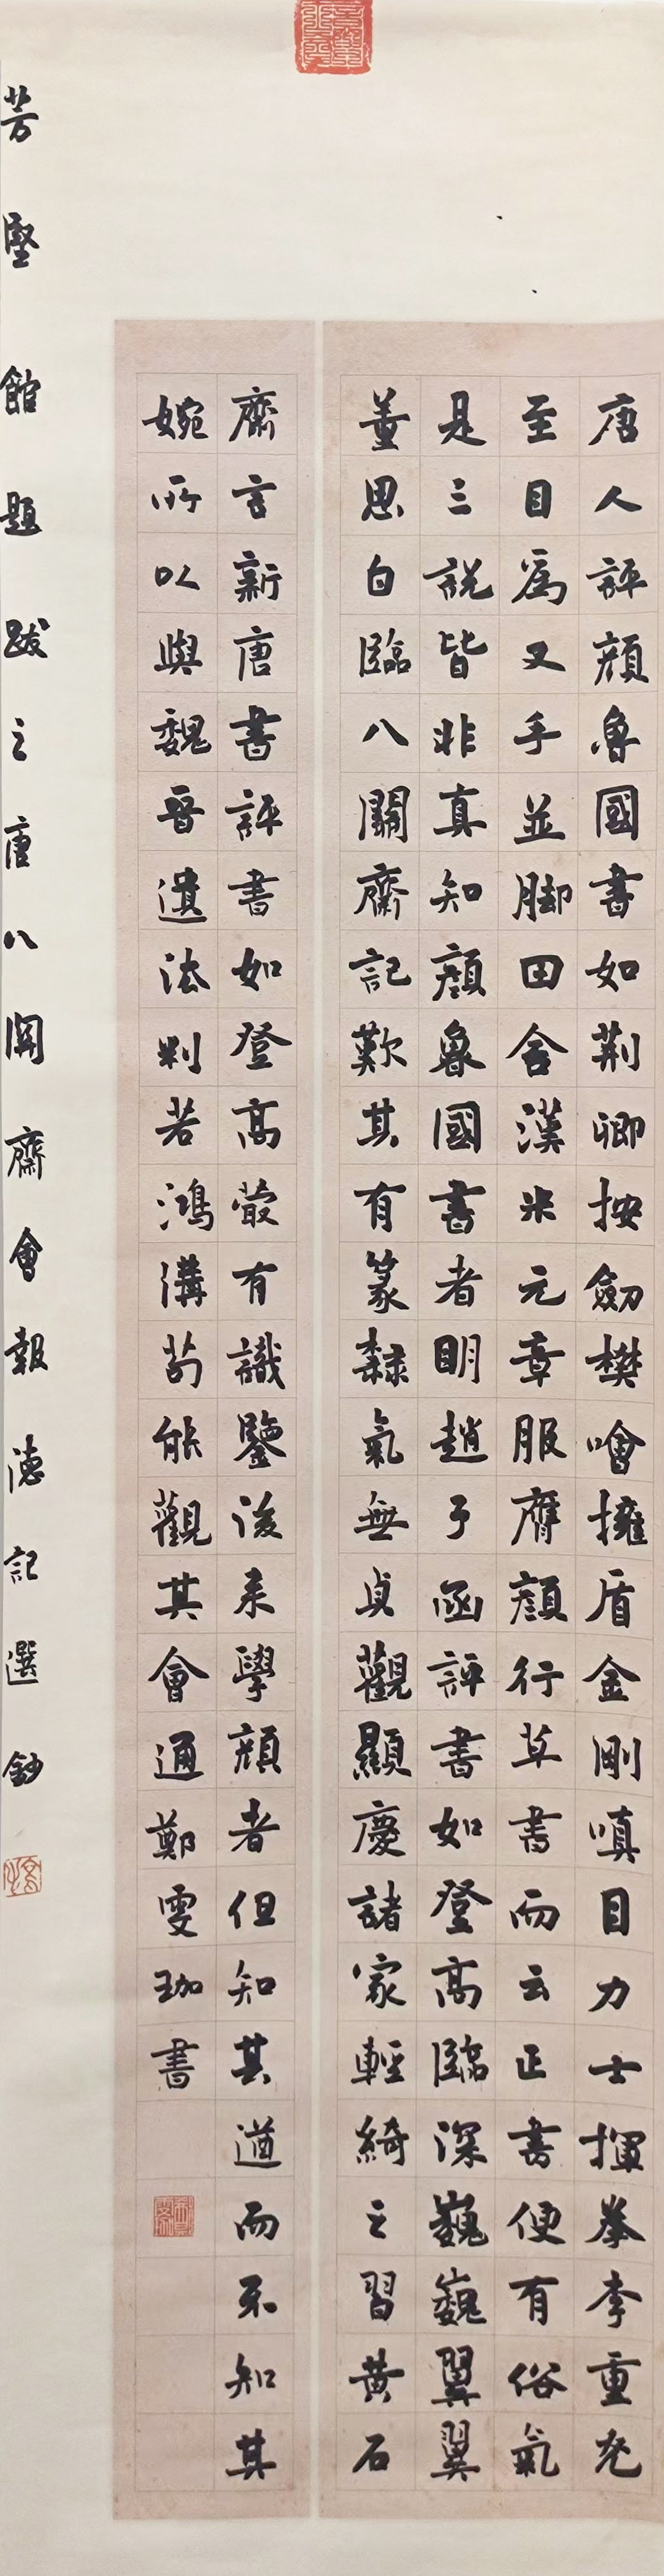 唐人評顏魯國書如荆卿按劒樊噲擁盾金剛嗔目力士揮拳李重光
至目為叉手並脚田舍漢米元章服膺顏行草書而云正書便有俗氣
是三說皆非真知顏魯國書者明趙子函評書如登高臨深巍巍翼翼
董思白臨八關齋記歎其有篆隸氣無貞觀顯慶諸家輕綺之習黄石
齋言新唐書評書如登高最有識鑒後來學顏者但知其遒而不知其
婉所以與魏晉遺法判若鴻溝苟能觀其會通鄭雯珈書
芳堅館題跋之唐八關齋會報德記選鈔